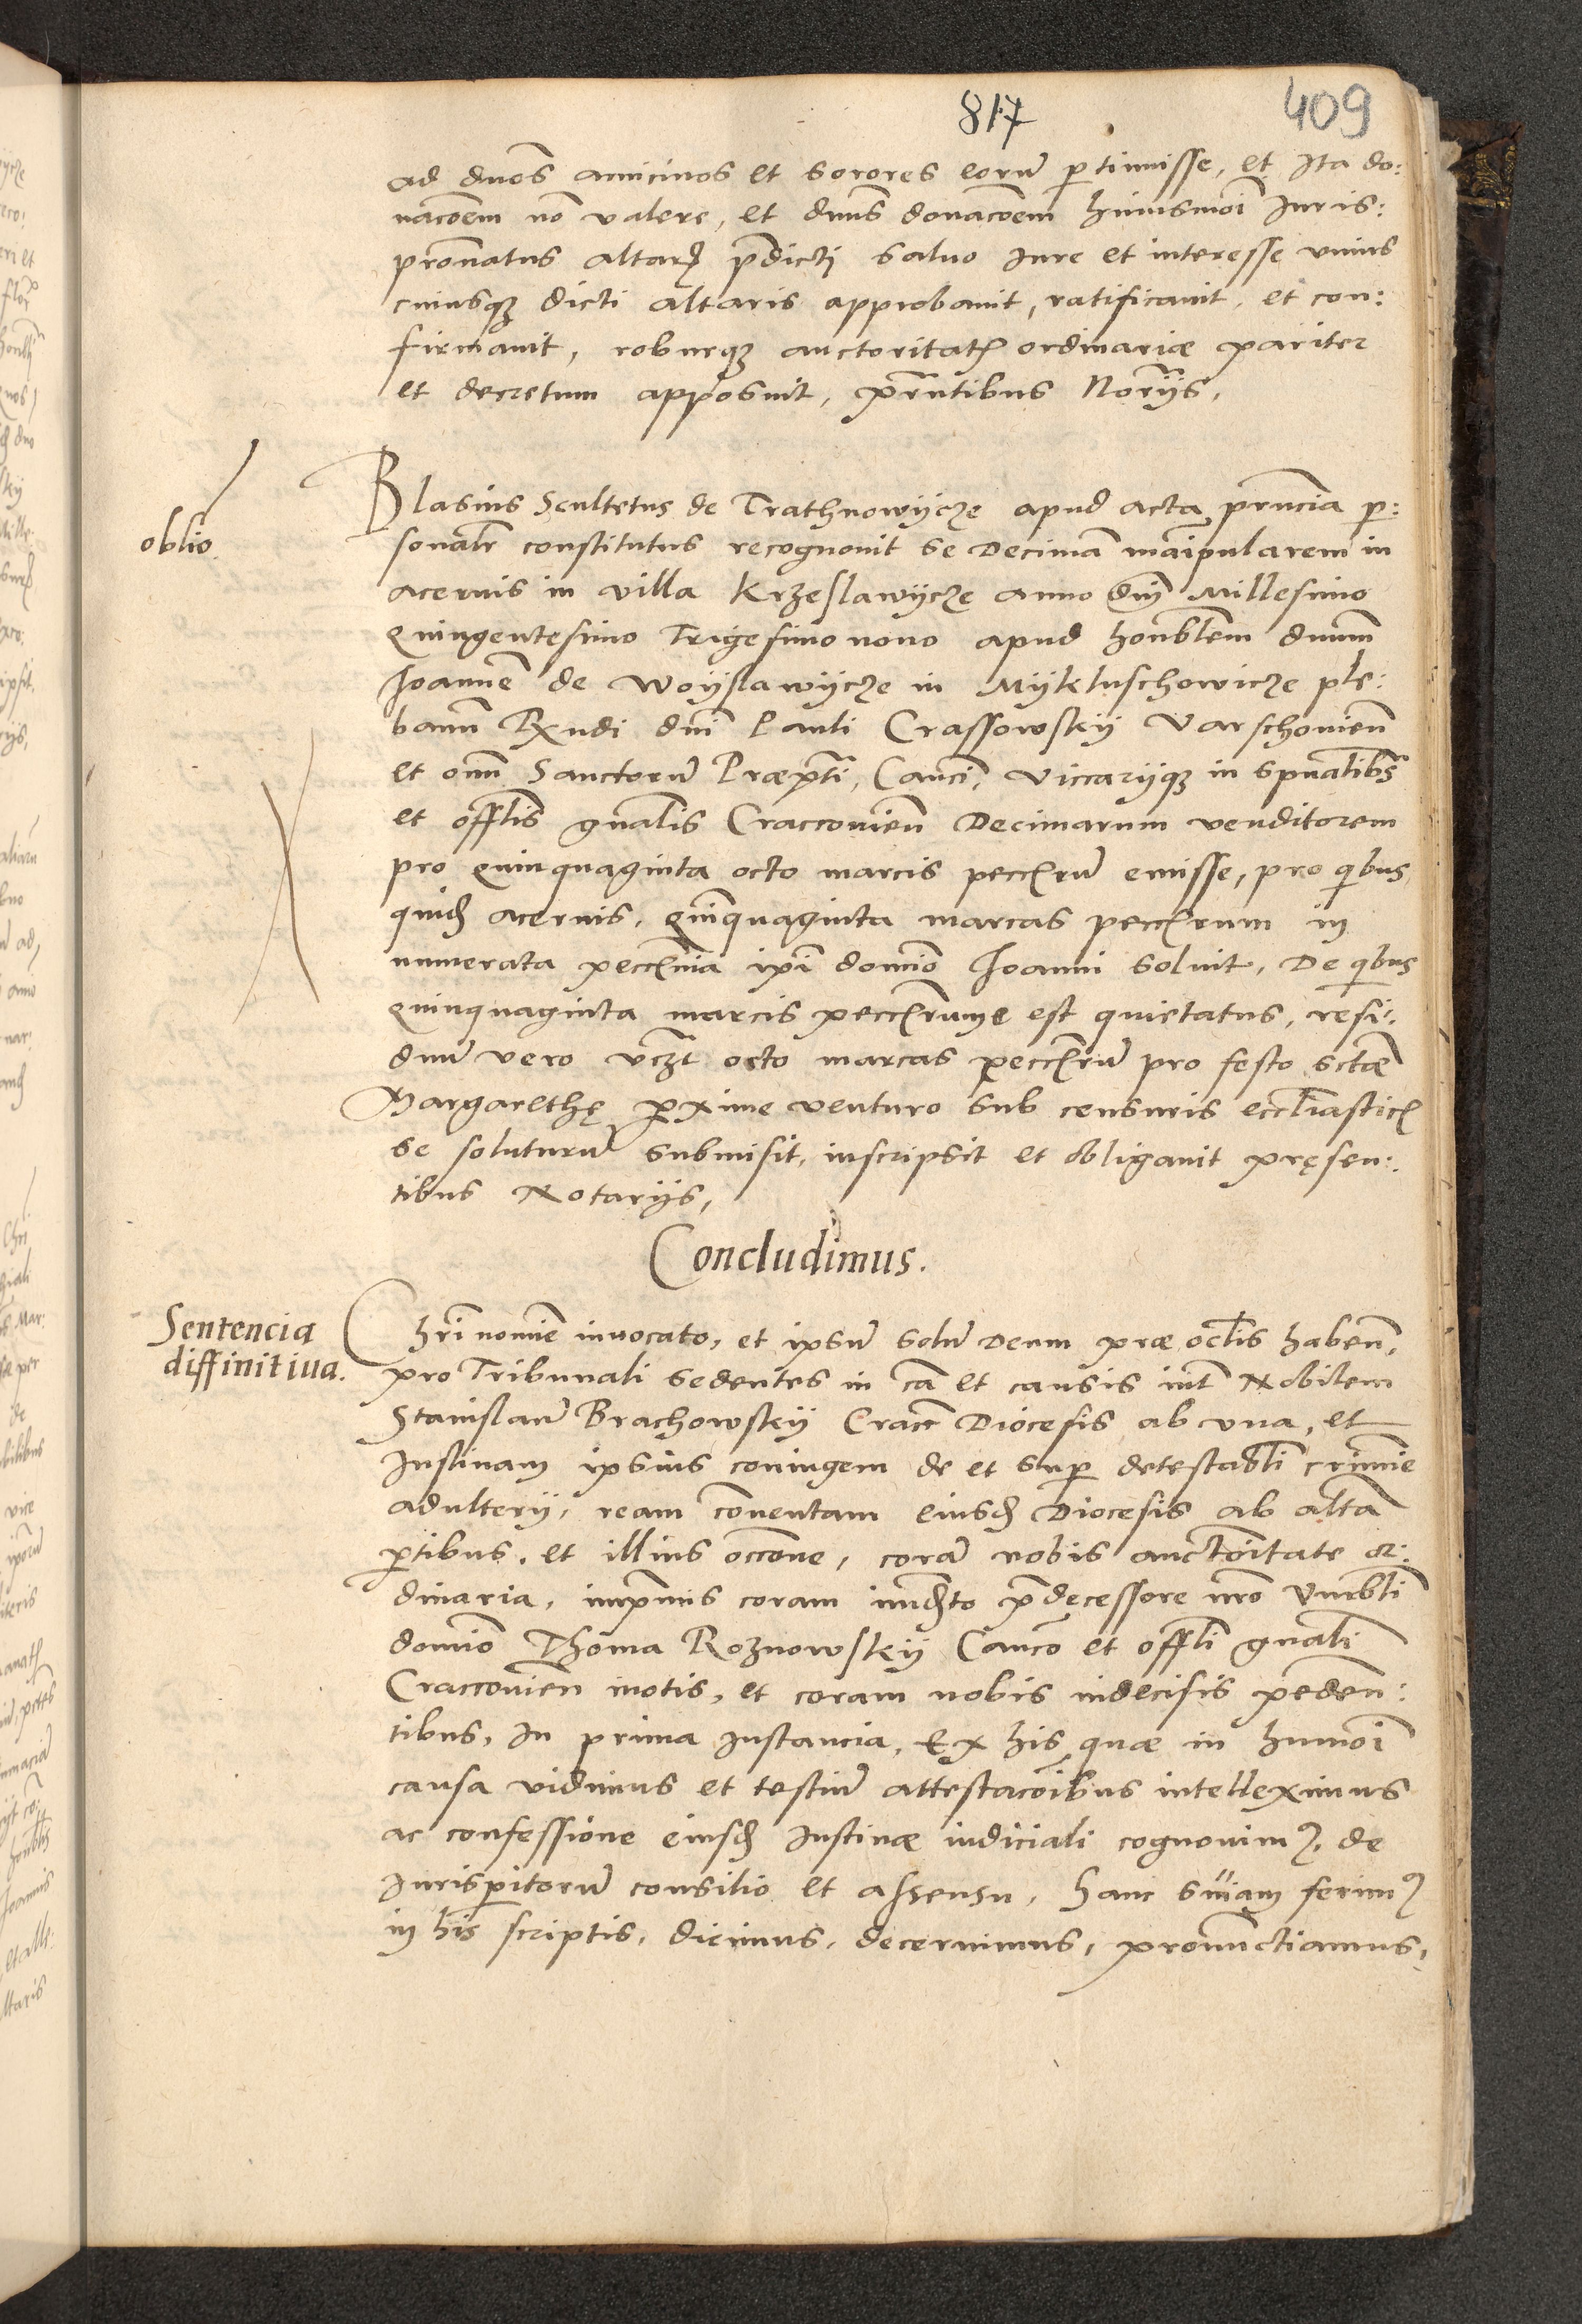 817
409
ad duos amicinos et sorores eorũ ptinuisse, et Ita do:
nacõem nõ valere, et dnus donacõem huiusmoi Iuris:
pronatus altar pdicti salvo Iure et interesse vnius
cuiusq dicti altaris approbauit, ratificauit, et con:
firmauit, roburq auctoritat ordinariæ pariter
et decretum apposuit, pñtibus Noriis,
oblio
Blasius Scultetus de Trathnowÿcze apud acta pñcia p:
sonalr constitutus recognouit se Decimã maipularem in
aceruis in villa Krzeslawÿcze anno dñi Millesimo
Quingentesimo Trigesimo nono apud honblem dnum
Joannẽ de Woÿslawÿcze in Mÿkluschowicze ple:
banũ Rndi dni Pauli Crassowskÿ Varschouieñ
et oñiũ Sanctorũ Præpti, Canci, Viccariiq in spualibs
et offlis gnalis Craccouieñ Decimarum venditorem
pro quinquaginta octo marcis peccrũ emisse, pro qbus
quid aceruis, quinquaginta marcas peccrum in
numerata peccunia ipi domio Joanni soluit, De qbus
quinquaginta marcis peccrum est quietatus, resi:
duũ vero vczt octo marcas peccrũ pro festo sctæ
Margarethę pxime venturo sub censuris eccliastic
se soluturũ submisit, inscripsit et obligauit pręsen:
tibus Notariis,
Concludimus.
Sentencia
diffinitiua.
Chri nomie inuocato, et ipsũ solũ Deum præ oclis habeñ,
pro Tribunali sedentes in cã et causis int Nobilem
Stanislaũ Brachowskÿ Cracc Diocesis ab vna, et
Iustinam ipsius coniugem de et sup detestabli crimie
adulterii, ream conuentam eiusd Diocesis ab altã
ptibus, et illius occone, corã nobis auctoitate or:
dinaria, impimis coram imdto pdecessore nro Vnebli
domio Thoma Roznowskÿ Canco et offli gnali
Craccouieñ motis, et coram nobis indecisis penden:
tibus, In prima Instancia, Ex his quæ in humoi
causa vidimus et testiũ attestacoibus intelleximus
ac confessione eiusd Iustinæ iudiciali cognouim, de
Iurispitorũ consilio et assensu, hanc sniam ferim
in his scriptis, dicimus, decernimus, pronunctiamus,